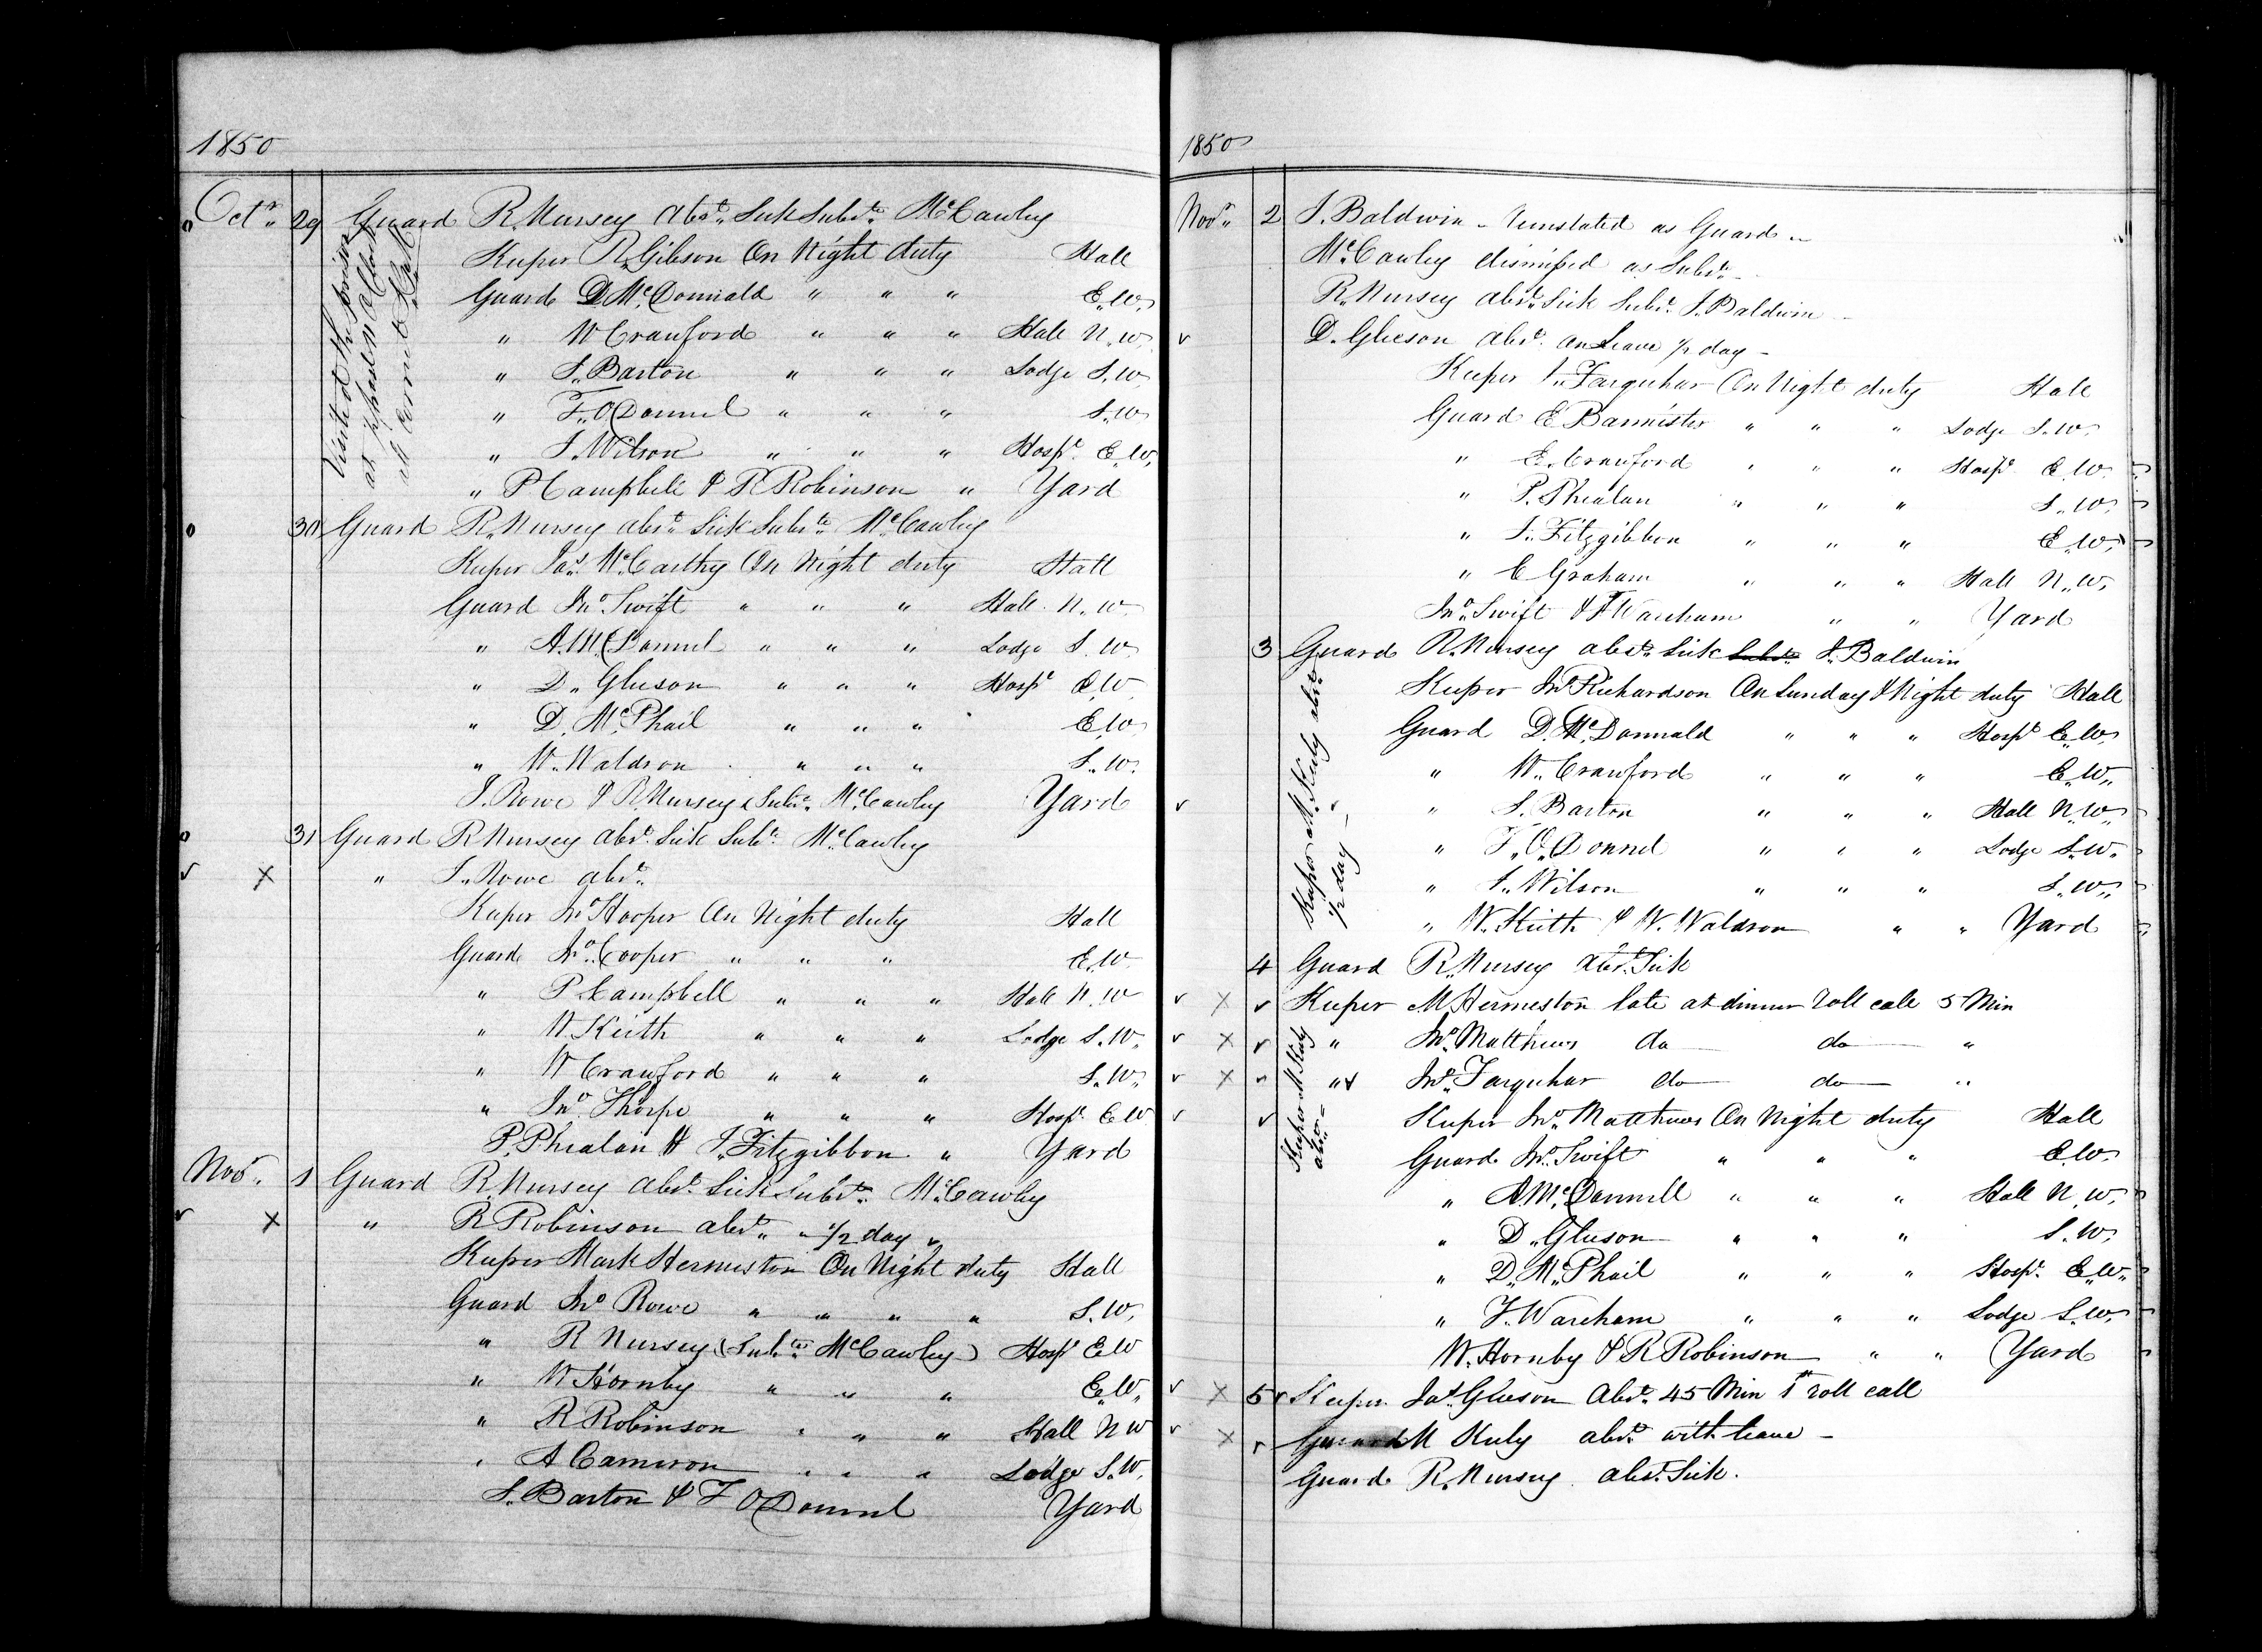 1850
Octr. 29 Guard R. Nursey absd. Sick Subste. McCawley
Visited the prison
at ½ past 11 o'Clock
all correct
Keeper R. Gibson On Night duty Hall
Guard D McDonnald " " " E.W.
" W Crauford " " " Hall N.W.
" S. Barton " " " Lodge S.W.
" F. O'Donnel " " " S.W.
" J. Wilson " " " Hospl. E.W.
" P Campbell & R Robinson " Yard
30 Guard R. Nursey absd. Sick Subste. McCawley
Keeper Jas. McCarthy On Night duty Hall
Guard Jno. Swift " " " Hall N.W.
" A. McDonnel " " " Lodge S.W.
" D. Gleeson " " " Hospl E.W.
" D. McPhail " " " E.W.
" W. Waldron " " " S.W.
J. Rowe & R Nursey (Subte. McCawley Yard
31 Guard R Nursey absd. Sick Subte. McCawley
" J. Rowe absd.
Keeper Jno Hooper On Night duty Hall
Guard Jno. Cooper " " " E.W.
" P Campbell " " " Hall N.W
" W Keith " " " Lodge S.W.
" W Crawford " " " S.W.
" Jno. Thorpe " " " Hospl. E.W
P. Phealan & J. Fitzgibbon " Yard
Novr. 1 Guard R. Nursey absd. Sick Subste. McCawley
" R Robinson absd. " 1/2 day "
Keeper Mark Hermeston On Night duty Hall
Guard Jno Rowe " " " " S.W.
" R Nursey (Subte. McCawley) Hospl E.W
" W Hornby " " " E.W.
" R Robinson " " " Hall N W
" A Cameron " " " Lodge S.W.
S. Barton & F O'Donnel Yard
1850
Novr. 2 J. Baldwin - reinstated as Guard -
McCawley dismissed as Subste. -
R. Nursey absd. Sick Subst. J. Baldwin -
D. Gleeson absd. on Leave 1/2 day -
Keeper Jno. Farquhar On Night duty Hall
Guard E Bannister " " " Lodge S.W.
" E. Crauford " " " Hospl E.W.
" P. Phealan " " " S.W.
" J. Fitzgibbon " " " E.W.
" C Graham " " " Hall N.W.
Jno. Swift & F Wareham " " Yard
3 Guard R. Nursey absd. Sick Subste. J. Baldwin
Keeper M. Kely absd.
1/2 day -
Keeper Jno Richardson On Sunday & Night duty Hall
Guard D. McDonnald " " " Hospl E.W.
" W. Crauford " " " E.W.
" S. Barton " " " Hall N.W.
" F. O'Donnel " " " Lodge S.W.
" J. Wilson " " " S.W.
" W. Keith & W. Waldron " " Yard
4 Guard R. Nursey absd. Sick
Keeper M Hermeston late at dinner roll call 5 Min
" Jno. Matthews do do "
" Jno. Farquhar do do "
Keeper M Kely
absd. -
Keeper Jno. Matthews On Night duty Hall
Guard Jno. Swift " " " E.W.
" A. McDonnell " " " Hall N.W.
" D. Gleeson " " " S.W.
" D. McPhail " " " Hospl. E.W.
" F. Wareham " " " Lodge S.W.
W. Hornby & R Robinson " " Yard
5 Keeper Jas. Gleeson absd. 45 Min 1st roll call
Guard M Kely absd. with leave -
Guard R. Nursey absd. Sick.